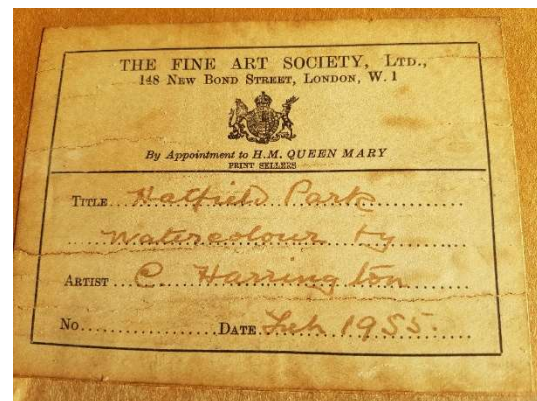 THE FINE ART SOCIETY, LTD.,
148 NEW BOND STREET, LONDON, W.1
By Appointment to H.M. QUEEN MARY
PRINT SELLERS
TITLE Hatfield Park
Watercolour by
ARTIST C. Harrington
No. DATE Feb 1955.